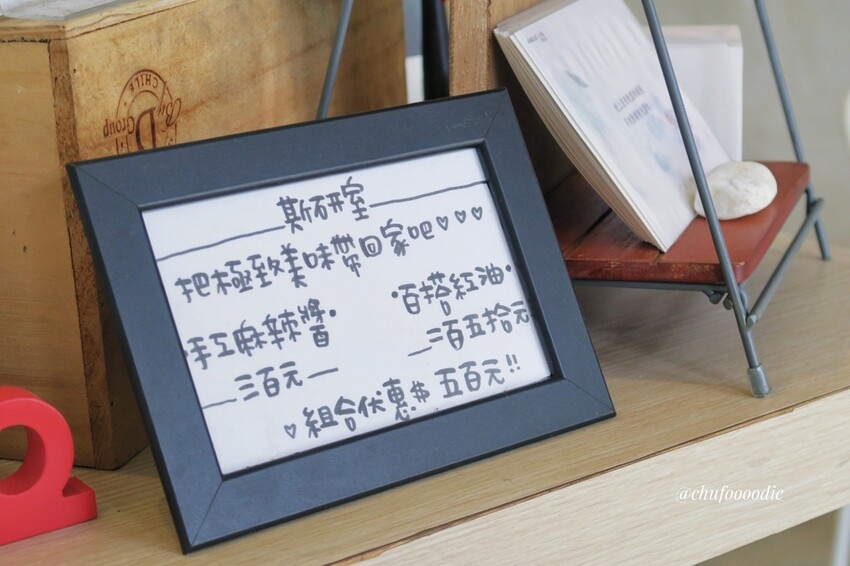 CHILE
D
Group
斯研室
把極致美味帶回家吧♡♡♡
•手工麻辣醬• •百搭紅油•
—三百元— —二百五拾元
♡組合优惠$ 五百元!!
@chufoooodie